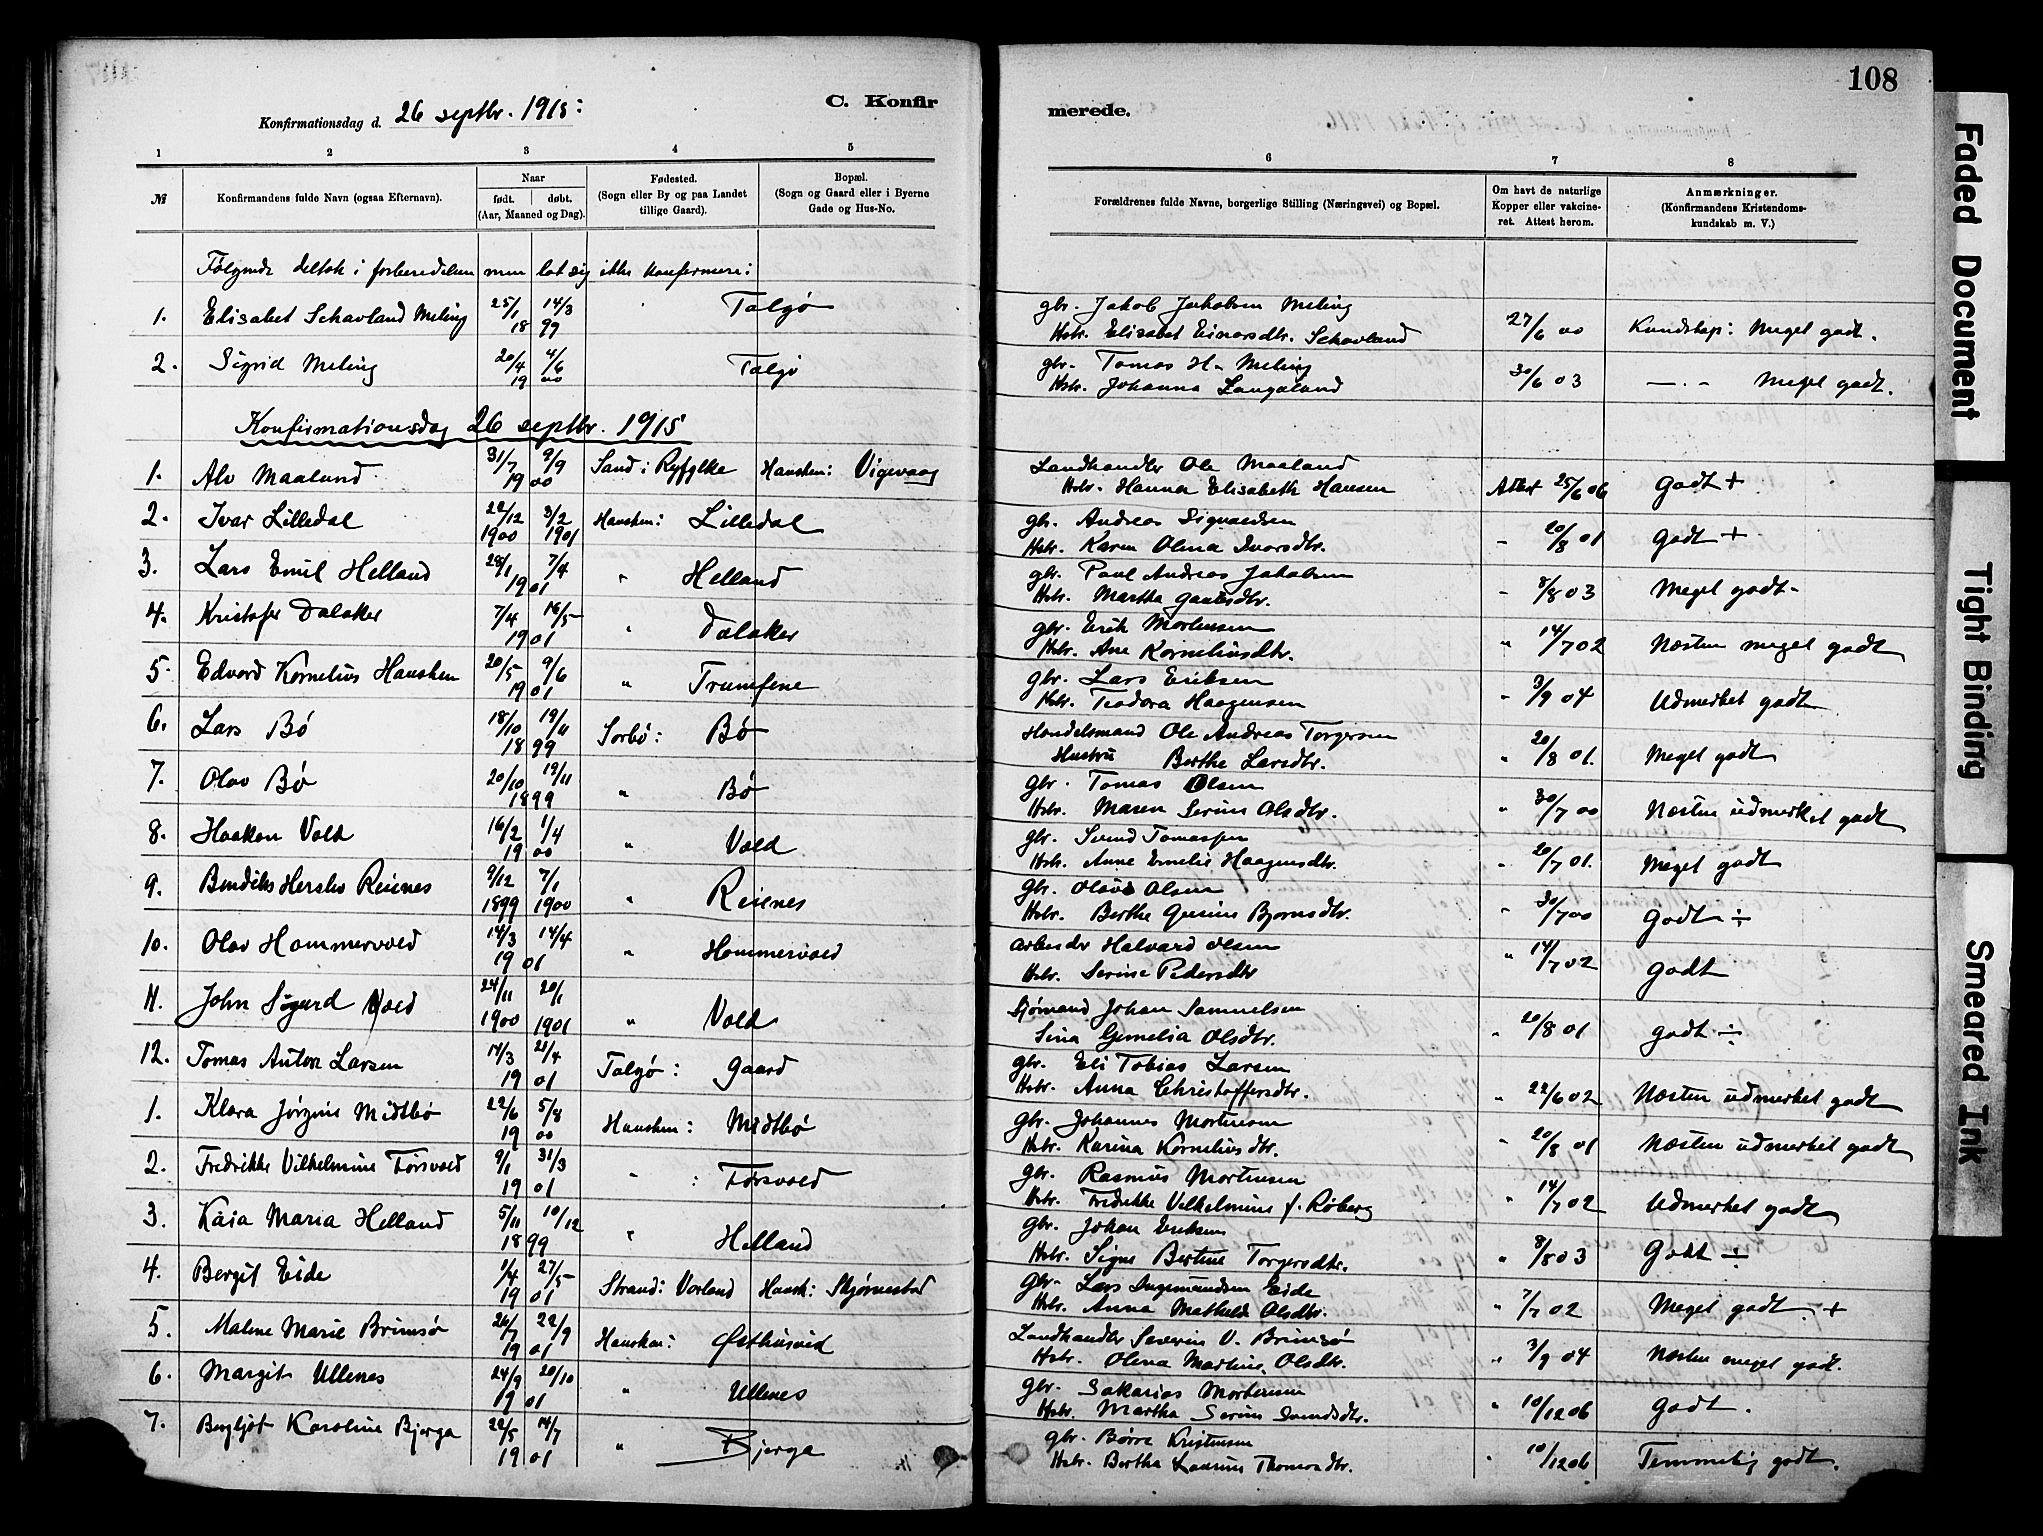 108
Konfirmationsdag d. 26 septbr. 1915:
C. Konfir
merede.
1 2 3 4 5 6 7 8
№
Konfirmandens fulde Navn (ogsaa Efternavn).
Naar
født. døbt.
(Aar, Maaned og Dag).
Fødested.
(Sogn eller By og paa Landet
tillige Gaard).
Bopæl.
(Sogn og Gaard eller i Byerne
Gade og Hus-No.
Forældrenes fulde Navne, borgerlige Stilling (Næringsvei) og Bopæl.
Om havt de naturlige
Kopper eller vakcine-
ret. Attest herom.
Anmærkninger.
(Konfirmandens Kristendoms-
kundskab m. V.)
Følgende deltok i forberedelsen men lot sig ikke konfirmere:
1. Elisabet Schavland Meling 25/1 14/3 1899 Talgø
gbr. Jakob Jakobsen Meling
Hstr. Elisabet Einarsdtr. Schavland 27/6 00 Kundskap: Meget godt.
2. Sigrid Meling 20/4 4/6 1900 Talgø
gbr. Tomas H. Meling
Hstr. Johanna Langaland 30/6 03 —.— Meget godt.
Konfirmationsdag 26 septbr. 1915
1. Alv Maaland 31/7 9/9 1900 Sand i Ryfylke Hausken: Vigevaag
Landhandler Ole Maaland
Hstr. Hanna Elisabeth Hansen Attest 25/6 06 Godt +
2. Ivar Lilledal 22/12 1900 3/2 1901 Hausken: Lilledal
gbr. Andreas Sigvaldsen
Hstr. Karen Olina Ivarsdtr. " 20/8 01 Godt +
3. Lars Emil Helland 28/1 7/4 1901 " Helland
gbr. Paul Andreas Jakobsen
Hstr. Martha Gautesdtr. " 8/8 03 Meget godt
4. Kristofer Dalaker 7/4 16/5 1901 " Dalaker
gbr. Erik Mortensen
Hstr. Ane Korneliusdtr. " 14/7 02 Næsten meget godt
5. Edvard Kornelius Hausken 20/5 9/6 1901 " Trumfene
gbr. Lars Eriksen
Hstr. Teodora Haagensen " 3/9 04 Udmerket godt
6. Lars Bø 18/10 19/11 1899 Sørbø: Bø
Handelsmand Ole Andreas Torgersen
Hustru Berthe Larsdtr. " 20/8 01. Meget godt
7. Olav Bø 20/10 19/11 1899 " Bø
gbr. Tomas Olsen
Hstr. Maren Serine Olsdtr. " 30/7 00 Næsten udmerket godt
8. Haakon Vold 16/2 1/4 1900 " Vold
gbr. Svend Tomassen
Hstr. Anne Emelie Haagensdtr. " 20/7 01. Meget godt
9. Bendiks Herslev Reienes 9/12 1899 7/1 1900 " Reienes
gbr. Olave Olsen
Hstr. Berthe Gurine Bjørnsdtr. " 30/7 00 Godt ÷
10. Olav Hommervold 14/3 14/4 1901 " Hommervold
Arbeider Halvard Olsen
Hstr. Serine Pedersdtr " 14/7 02 Godt
11. John Sigurd Vold 24/11 1900 20/1 1901 " Vold
Sjømand Johan Samuelsen
Sina Gemelia Olsdtr. " 20/8 01 Godt ÷
12. Tomas Anton Larsen 17/3 21/4 1901 Talgø: Gaard
gbr. Eli Tobias Larsen
Hstr. Anna Christoffersdtr. " 22/6 02 Næsten udmerket godt
1. Klara Jørgine Midtbø 22/6 5/8 1900 Hausken: Midtbø
gbr. Johannes Mortensen
Hstr. Karina Korneliusdtr. " 20/8 01 Næsten udmerket godt
2. Fredrikke Vilhelmine Førsvold 9/1 31/3 1901 " : Førsvold
gbr. Rasmus Mortensen
Hstr. Fredrikke Vilhelmine f. Røberg " 14/7 02 Udmerket godt
3. Kaia Maria Helland 5/11 10/12 1899 " Helland
gbr. Johan Eriksen
Hstr. Signe Bertine Torgersdtr. " 8/8 03 Godt ÷
4. Bergit Eide 1/4 27/5 1901 Strand: Vorland Hausk: Skjørnestad
gbr. Lars Ingemundsen Eide
Hstr. Anna Mathilde Olsdtr. " 7/7 02 Meget godt +
5. Malene Marie Brimsø 26/7 22/9 1901 Hausken: Østhusvik
Landhandler Severin V. Brimsø
Hstr. Olena Martine Olsdtr. " 3/9 04 Næsten meget godt.
6. Margit Ullenes 24/9 20/10 1901 " Ullenes
gbr. Sakarias Mortensen
Hstr. Martha Serine Svendsdtr. " 10/12 06 Godt.
7. Bergljot Karoline Bjerga 22/5 14/7 1901 " Bjerga
gbr. Børre Kristensen
Hstr. Bertha Laurine Thomasdtr. " 10/12 06 Temmelig godt.
Faded Document
Tight Binding
Smeared Ink